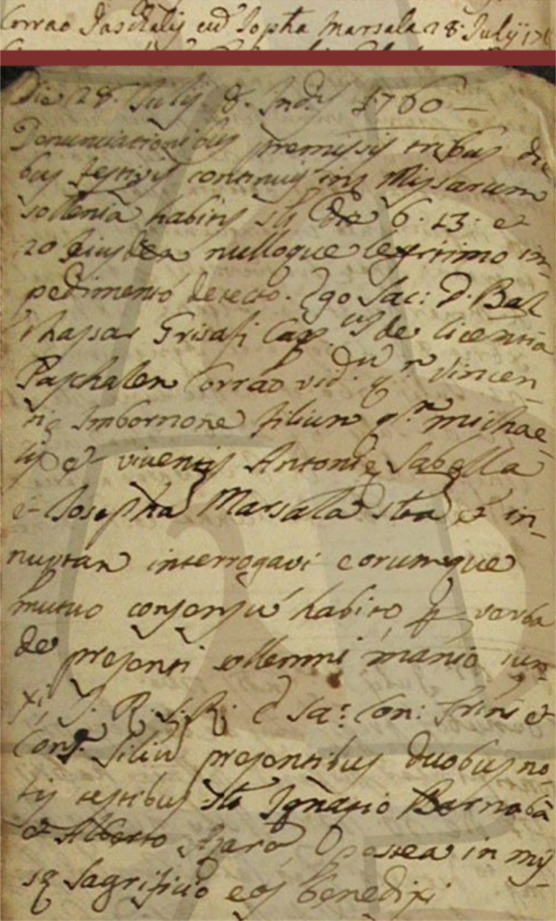 Corrao Paschalis cũ Iopha Marsala 28 Iulij 17
Die 28 Iulij 8. Ind. 1760 —
Denunciationibus premissis tribus die
bus festivis continuis ins Missarum
sollenia habitis sh Die 6. 13. e
20 eiusdem nulloque legitimo im
pedimento detecto. Ego Sac: D. Bal
thasar Grisafi Cap. de licentia
Paschalem Corrao vid. q. Vincen
tie Imbornone filium qm Michae
lis et viventis Antonie Sabella
e Iosepha Marsala et in
nuptam interrogavi eorumque
mutuo consensu habito p verba
de presenti sollemni
xi S. R. c Sa: Con: Trini e
Cons. filiu presentibus duobus no
tis testibus Ignatio Barnaba
e Alberto Azarò Postea in mis
sę sagrificio eos benedixi